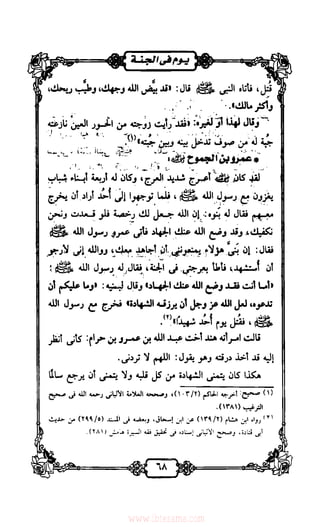 يوم في الجنة
قُتل، فأتاه النبي ﷺ قال: «قد بيَّض الله وجهك، وطيَّب ريحك،
وأكثر مالك».
وقال لهذا أو لغيره: «فقد رأيت زوجته من الحور العين نازعته
جبة له من صوف تدخل بينه وبين جبته»(١).
* عمرو بن الجموح ﷺ:
لقد كان ﷺ أعرج شديد العرج، وكان له أربعة أبناء شباب
يغزون مع رسول الله ﷺ، فلما توجهوا إلى أُحد أراد أن يخرج
معهم فقال له بنوه: إن الله جعل لك رخصة فلو قعدت ونحن
نكفيك، وقد وضع الله عنك الجهاد فأتى عمرو رسول الله ﷺ
فقال: إن بَنيَّ هؤلاء يمنعونني أن أجاهد معك، ووالله إني لأرجو
أن أُستشهد، فأطأ بعرجتي في الجنة، فقال له رسول الله ﷺ:
«أما أنت فقد وضع الله عنك الجهاد» وقال لبنيه: «وما عليكم أن
تدعوه، لعل الله عز وجل أن يرزقه الشهادة» فخرج مع رسول الله
ﷺ، فقُتل يوم أُحد شهيدًا»(٢).
قالت امرأته هند أخت عبد الله بن عمرو بن حرام: كأني أنظر
إليه قد أخذ درقته وهو يقول: اللهم لا تردني.
هكذا كان يتمنى الشهادة من كل قلبه ولا يتمنى أن يرجع سالمًا
(١) صحيح: أخرجه الحاكم (١٠٣/٢)، وصححه العلامة الألباني رحمه الله في صحيح
الترغيب (١٣٨١).
(٢) رواه ابن هشام (١٣٩/٢) عن ابن إسحاق، وبعضه في المسند (٢٩٩/٥) من حديث
أبي قتادة، وصحح الألباني إسناده في تحقيق فقه السيرة هامش (٢٨١).
٦٨